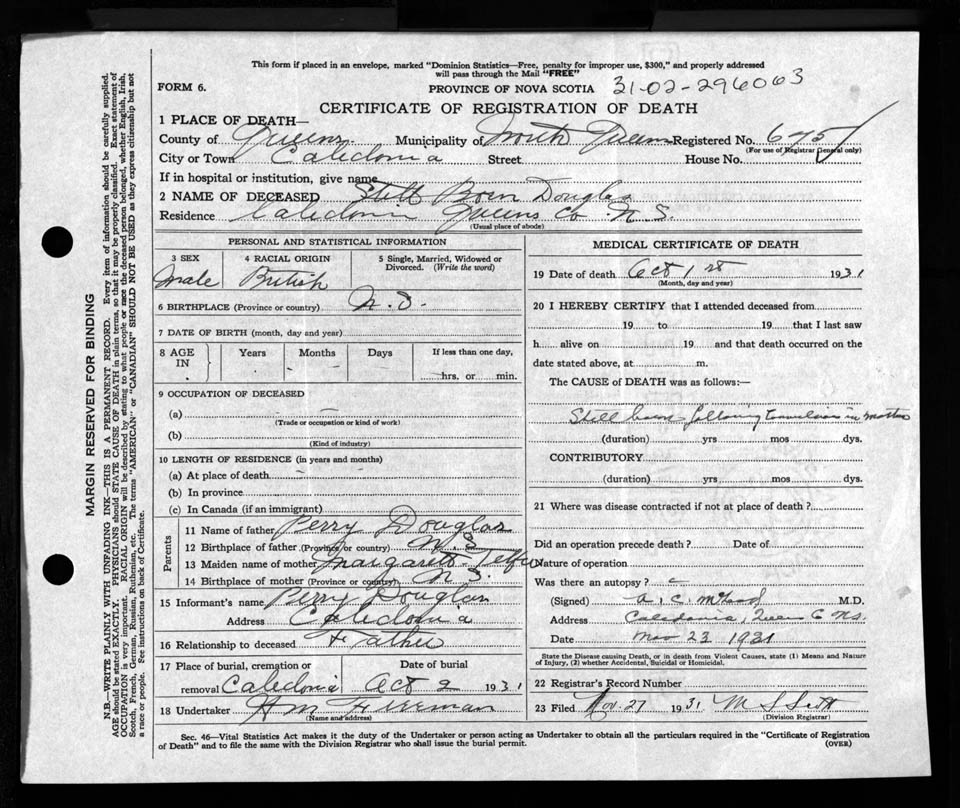 This form if placed in an envelope, marked "Dominion Statistics—Free, penalty for improper use, $300," and properly addressed
will pass through the Mail "FREE"
FORM 6.
PROVINCE OF NOVA SCOTIA 31-02-296063
CERTIFICATE OF REGISTRATION OF DEATH
1 PLACE OF DEATH—
County of Queens Municipality of North Queens Registered No. 675
(For use of Registrar General only)
City or Town Caledonia Street House No.
If in hospital or institution, give name
2 NAME OF DECEASED Still Born Douglas
Residence Caledonia Queens Co N.S.
(Usual place of abode)
PERSONAL AND STATISTICAL INFORMATION
3 SEX
Male
4 RACIAL ORIGIN
British
5 Single, Married, Widowed or
Divorced. (Write the word)
6 BIRTHPLACE (Province or country) N.S.
7 DATE OF BIRTH (month, day and year)
8 AGE
IN
Years Months Days
If less than one day,
hrs. or min.
9 OCCUPATION OF DECEASED
(a)
(Trade or occupation or kind of work)
(b)
(Kind of industry)
10 LENGTH OF RESIDENCE (in years and months)
(a) At place of death
(b) In province
(c) In Canada (if an immigrant)
Parents
11 Name of father Perry Douglas
12 Birthplace of father (Province or country) N.S
13 Maiden name of mother Margaret Telfer
14 Birthplace of mother (Province or country) N S.
15 Informant's name Perry Douglas
Address Caledonia
16 Relationship to deceased Father
17 Place of burial, cremation or
removal Caledonia
Date of burial
Oct 2 1931
18 Undertaker H M Freeman
(Name and address)
MEDICAL CERTIFICATE OF DEATH
19 Date of death Oct 1st 1931
(Month, day and year)
20 I HEREBY CERTIFY that I attended deceased from
19 to 19 that I last saw
h alive on 19 and that death occurred on the
date stated above, at m.
The CAUSE of DEATH was as follows:—
Still born following convulsions in mother
(duration) yrs mos dys.
CONTRIBUTORY
(duration) yrs mos dys.
21 Where was disease contracted if not at place of death?
Did an operation precede death? Date of
Nature of operation
Was there an autopsy?
(Signed) A. C. McLeod M.D.
Address Caledonia, Queens Co N.S.
Date Nov 23 1931
State the Disease causing Death, or in death from Violent Causes, state (1) Means and Nature
of Injury, (2) whether Accidental, Suicidal or Homicidal.
22 Registrar's Record Number
23 Filed Nov. 27 1931 M S Scott
(Division Registrar)
Sec. 46—Vital Statistics Act makes it the duty of the Undertaker or person acting as Undertaker to obtain all the particulars required in the "Certificate of Registration
of Death" and to file the same with the Division Registrar who shall issue the burial permit.
(OVER)
MARGIN RESERVED FOR BINDING
N.B.—WRITE PLAINLY WITH UNFADING INK—THIS IS A PERMANENT RECORD. Every item of information should be carefully supplied.
AGE should be stated EXACTLY. PHYSICIANS should STATE CAUSE OF DEATH in plain terms, so that it may be properly classified. Exact statement of
OCCUPATION is very important. RACIAL ORIGIN will be described by stating to what people or race the deceased person belonged, whether English, Irish,
Scotch, French, German, Russian, Ruthenian, etc. The terms "AMERICAN" or "CANADIAN" SHOULD NOT BE USED as they express citizenship but not
a race or people. Fee instructions on back of Certificate.